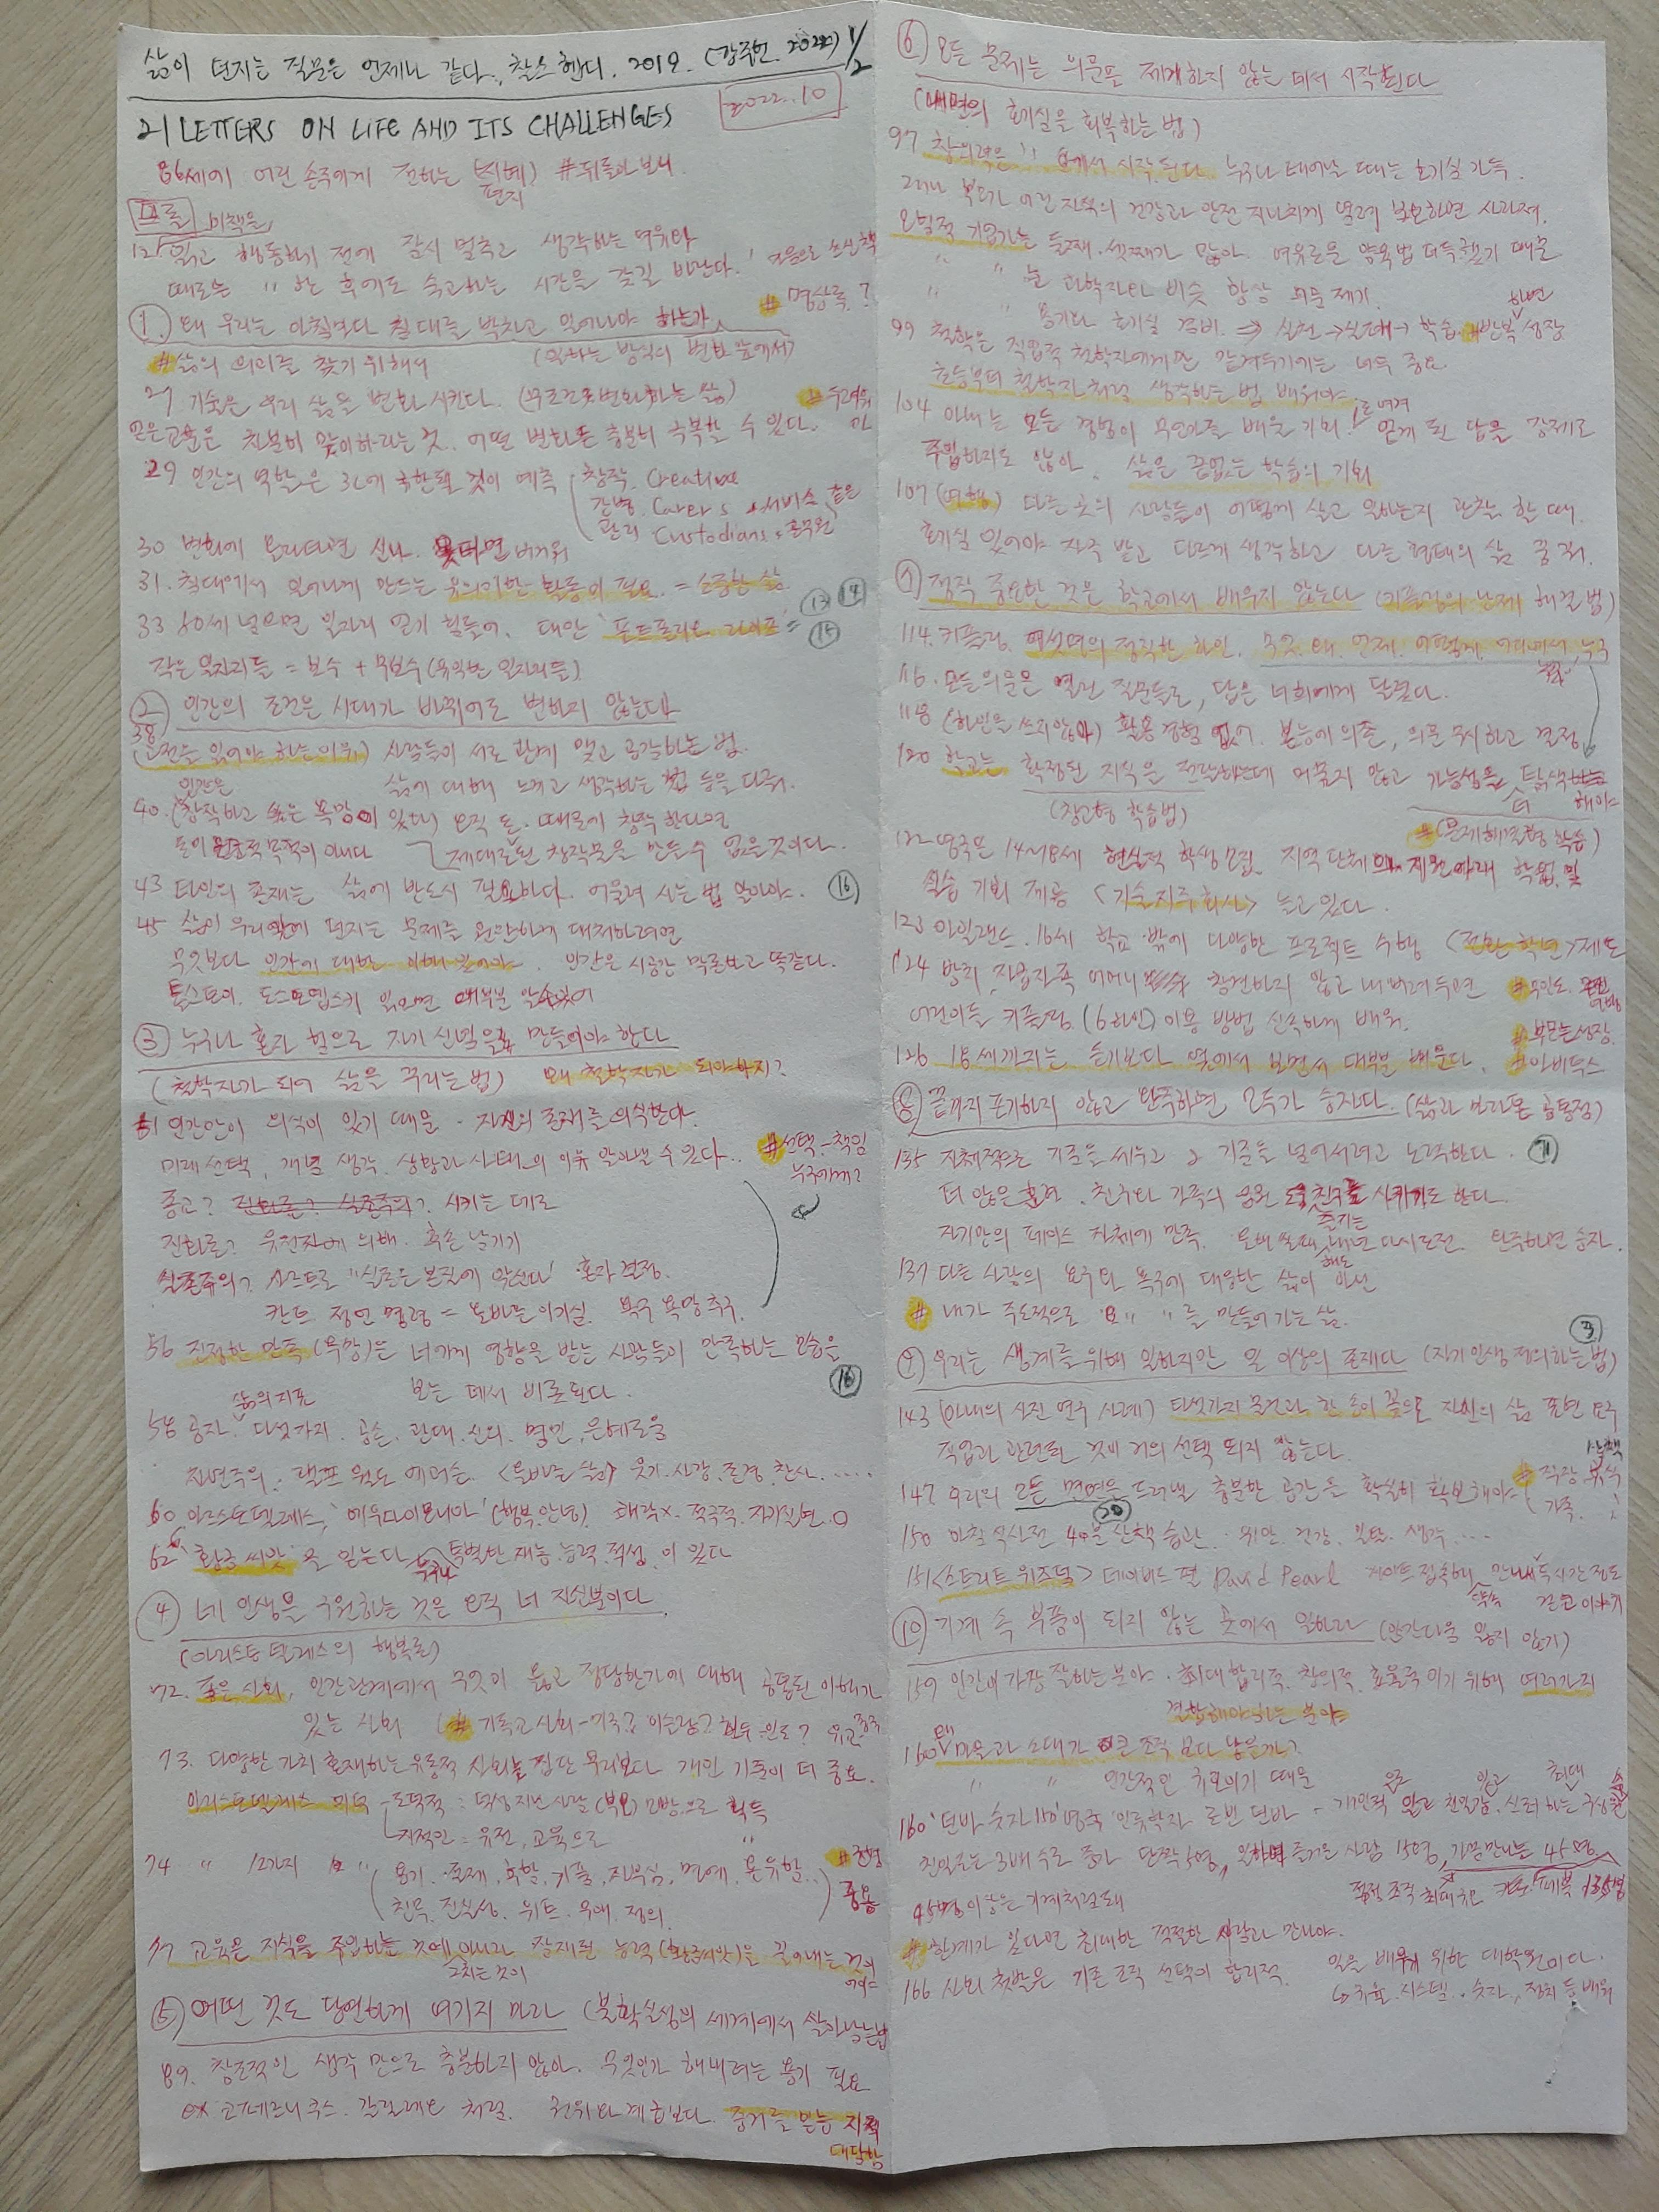 삶이 던지는 질문은 언제나 같다. 찰스 핸디. 2019. (강주헌. 2022) 1/2
21 LETTERS ON LIFE AND ITS CHALLENGES
2022.10
86세에 어린 손주에게 전하는 (지혜) #뒤돌아 보니
편지
프롤 이책을
12 읽고 행동하기 전에 잠시 멈추고 생각하는 여유와
때로는 〃 한 후에도 숙고하는 시간을 갖길 바란다.
# 명상록?
① 왜 우리는 아침마다 침대를 박차고 일어나야 하는가
#삶의 의미를 찾기 위해서 (일하는 방식의 변화 앞에서)
27 기술은 우리 삶을 변화시킨다.
교훈은 차분히 맞이하라는 것. 어떤 변화든 충분히 극복할 수 있다.
29 인간의 역할은 3C에 국한될 것이 예측 창작. Creative
간병. Carers 서비스 같은
관리 Custodians 공무원
30 변화에 올라타면 신나. 못타면 버거워
31. 침대에서 일어나게 만드는 유의미한 활동이 필요. = 소중한 삶
33 50세 넘으면 일자리 얻기 힘들어. 대안 '포트폴리오 라이프' = ⑬ ⑭ ⑮
작은 일자리들 = 보수 + 무보수 (유익한 일자리들)
② 인간의 조건은 시대가 바뀌어도 변하지 않는다
38 (고전을 읽어야 하는 이유) 사람들이 서로 관계 맺고 공감하는 법.
삶에 대해 느끼고 생각하는 법 등을 다뤄.
인간은
40. (창작하고 싶은 욕망이 있다) 오직 돈 때문에 창작한다면
돈이 궁극적 목적이 아니다 제대로된 창작물을 만들 수 없을 것이다.
43 타인의 존재는 삶에 반드시 필요하다. 어울려 사는 법 알아야. ⑯
45 삶이 우리앞에 던지는 문제를 원만하게 대처하려면
무엇보다 인간에 대한 이해 있어야. 인간은 시공간 막론하고 똑같다.
톨스토이. 도스토옙스키 읽으면 대부분 알수있어
③ 누구나 혼자 힘으로 자기 신념을 만들어야 한다
(철학자가 되어 삶을 꾸리는 법) 왜 철학자가 되야하지?
51 인간만이 의식이 있기 때문. 자신의 존재를 의식한다.
미래 선택, 개념 생각. 상황과 사태의 이유 알아낼 수 있다.. #선택-책임
누구에게?
종교? 시키는 대로
진화론? 유전자에 의해. 후손 남기기
실존주의? 사르트르 "실존은 본질에 앞선다" 혼자 결정.
칸트 정언 명령 = 올바른 이기심. 욕구 욕망 추구.
56 진정한 만족(욕망)은 너에게 영향을 받는 사람들이 만족하는 모습을
보는 데서 비롯된다. ⑯
삶의지표
58 공자. 다섯가지. 공손. 관대. 신의. 명민. 은혜로움
자연주의. 랠프 월도 에머슨. 웃기. 사랑. 존경. 찬사. ....
60 아리스토텔레스, '에우다이모니아' (행복.안녕). 쾌락 x. 적극적. 자기실현. O
62 '황금 씨앗'을 믿는다 누구나 특별한 재능. 능력. 적성. 이 있다
④ 네 인생을 구원하는 것은 오직 너 자신뿐이다.
(아리스토텔레스의 행복론)
72. 좋은 사회, 인간관계에서 무엇이 옳고 정당한가에 대해 공통된 이해가
있는 사회 (# 기독교사회-미국? 이슬람? 힌두.인도? 유교.중국
73. 다양한 가치 혼재하는 유동적 사회는 집단 무리보다 개인 기준이 더 중요.
아리스토텔레스 미덕 - 도덕적 : 덕성 지닌 사람 (부모) 모방으로 획득
지적인 : 유전, 교육으로 〃
74 〃 12가지 〃 용기. 절제. 화합. 기품. 자부심. 명예. 온유함.. #전형
친목. 진실성. 위트. 우애. 정의. 중용
77 교육은 지식을 주입하는 것에 그치는 것이 아니라 잠재된 능력(황금씨앗)을 끌어내는 것이어야
⑤ 어떤 것도 당연하게 여기지 마라 (불확실성의 세계에서 살아남는법
89. 창조적인 생각 만으로 충분하지 않아. 무엇인가 해내려는 용기 필요
ex 코페르니쿠스. 갈릴레오 처럼. 권위와 계층보다. 증거를 믿는 지적
대담함
⑥ 모든 문제는 의문을 제기하지 않는 데서 시작된다
(내면의 호기심을 회복하는 법)
97 창의력은 〃 에서 시작된다. 누구나 태어날 때는 호기심 가득.
그러나 부모가 어린 자식의 건강과 안전 지나치게 염려 보호하면 사라져.
모험적 기업가는 둘째. 셋째가 많아. 여유로운 양육법 터득했기 때문
〃 〃 는 과학자와 비슷 항상 의문 제기.
〃 용기와 호기심 겸비. ⇒ 실천→실패→학습. 반복하면 성장
99 철학은 직업적 철학자에게만 맡겨두기에는 너무 중요
초등부터 철학자처럼 생각하는 법 배워야.
104 아내는 모든 경험이 무언가를 배울 기회로 여겨 얻게 된 답을 강제로
주입하지도 않아. 삶은 끝없는 학습의 기회
107 (여행) 다른 곳의 사람들이 어떻게 살고 일하는지 관찰 할 때.
호기심 있어야 자극 받고 다르게 생각하고 다른 형태의 삶 꿈 꿔.
⑦ 정작 중요한 것은 학교에서 배우지 않는다 (키플링의 난제 해결법)
114. 키플링. 여섯명의 정직한 하인. 무엇. 왜. 언제. 어떻게. 어디에서. 누구
116. 모든의문은 열린 질문들로, 답은 너희에게 달렸다.
118 (하인을 쓰지않아) 활용 경험 없어. 본능에 의존, 의문 무시하고 결정
120 학교는 확정된 지식을 전달하는데 머물지 않고 가능성을 더 탐색해야
(창고형 학습법) #(문제해결형 학습)
122 영국은 14~18세 현실적 학생 모집. 지역 단체의 지원아래 학업 및
실습 기회 제공 <기술지주회사> 늘고있다.
123 아일랜드. 16세 학교 밖에 다양한 프로젝트 수행 <전환 학년> 제도
124 방치. 자급자족 어머니 참견하지 않고 내버려두면 #무인도
어린이들 키플링 (6하인) 이용 방법 신속하게 배워. #부모는성장
126 18세까지는 듣기보다 옆에서 보면서 대부분 배운다. #아비투스
⑧ 끝까지 포기하지 않고 완주하면 모두가 승자다. (삶과 마라톤 공통점)
135 자체적으로 기준을 세우고 그 기준을 넘어서려고 노력한다. ⑪
더 많은 훈련. 친구와 가족의 응원
자기만의 페이스 자체에 만족. 다시도전. 완주하면 승자.
137 다른 사람의 요구와 욕구에 대응한 삶이 아닌
# 내가 주도적으로 〃 〃를 만들어가는 삶.
⑨ 우리는 생계를 위해 일하지만 일 이상의 존재다 (자기인생 정의하는 법) ③
143 (아내의 사진 연구 사례) 다섯가지 물건과 한 송이 꽃으로 자신의 삶 표현 요구
직업과 관련된 것이 거의 선택 되지 않는다.
147 우리의 모든 면면을 드러낼 충분한 공간을 확실히 확보해야 (# 직장.
가족.
⑳
150 아침 식사전 40분 산책 습관. 위안. 건강. 일탈. 생각....
151 <스트리트 위즈덤> 데이비드 펄 David Pearl
⑩ 기계 속 부품이 되지 않는 곳에서 일하라 (인간다움 잃지 않기)
159 인간이 가장 잘하는 분야. 최대 합리적. 창의적. 효율적 이기 위해 여러가지
결합해야 하는 분야
160 왜 마을과 소대가 큰 조직보다 나을까?
〃 〃 인간적인 규모이기 때문
160 '던바 숫자 150' 영국 인류학자 로빈 던바 - 개인적 친밀감. 신뢰하는 구성원
친밀도는 3배수로 증가 단짝 5명, 즐거운 사람 15명, 가끔만나는 45명
45명 이상은 기계처럼돼 적정 조직 최대규모
# 한계가 있다면 최대한 적절한 사람과 만나야.
166 사회 첫발은 기존 조직 선택이 합리적. 일을 배우기 위한 대학원이다.
↳규율. 시스템.. 숫자., 정치 등 배워